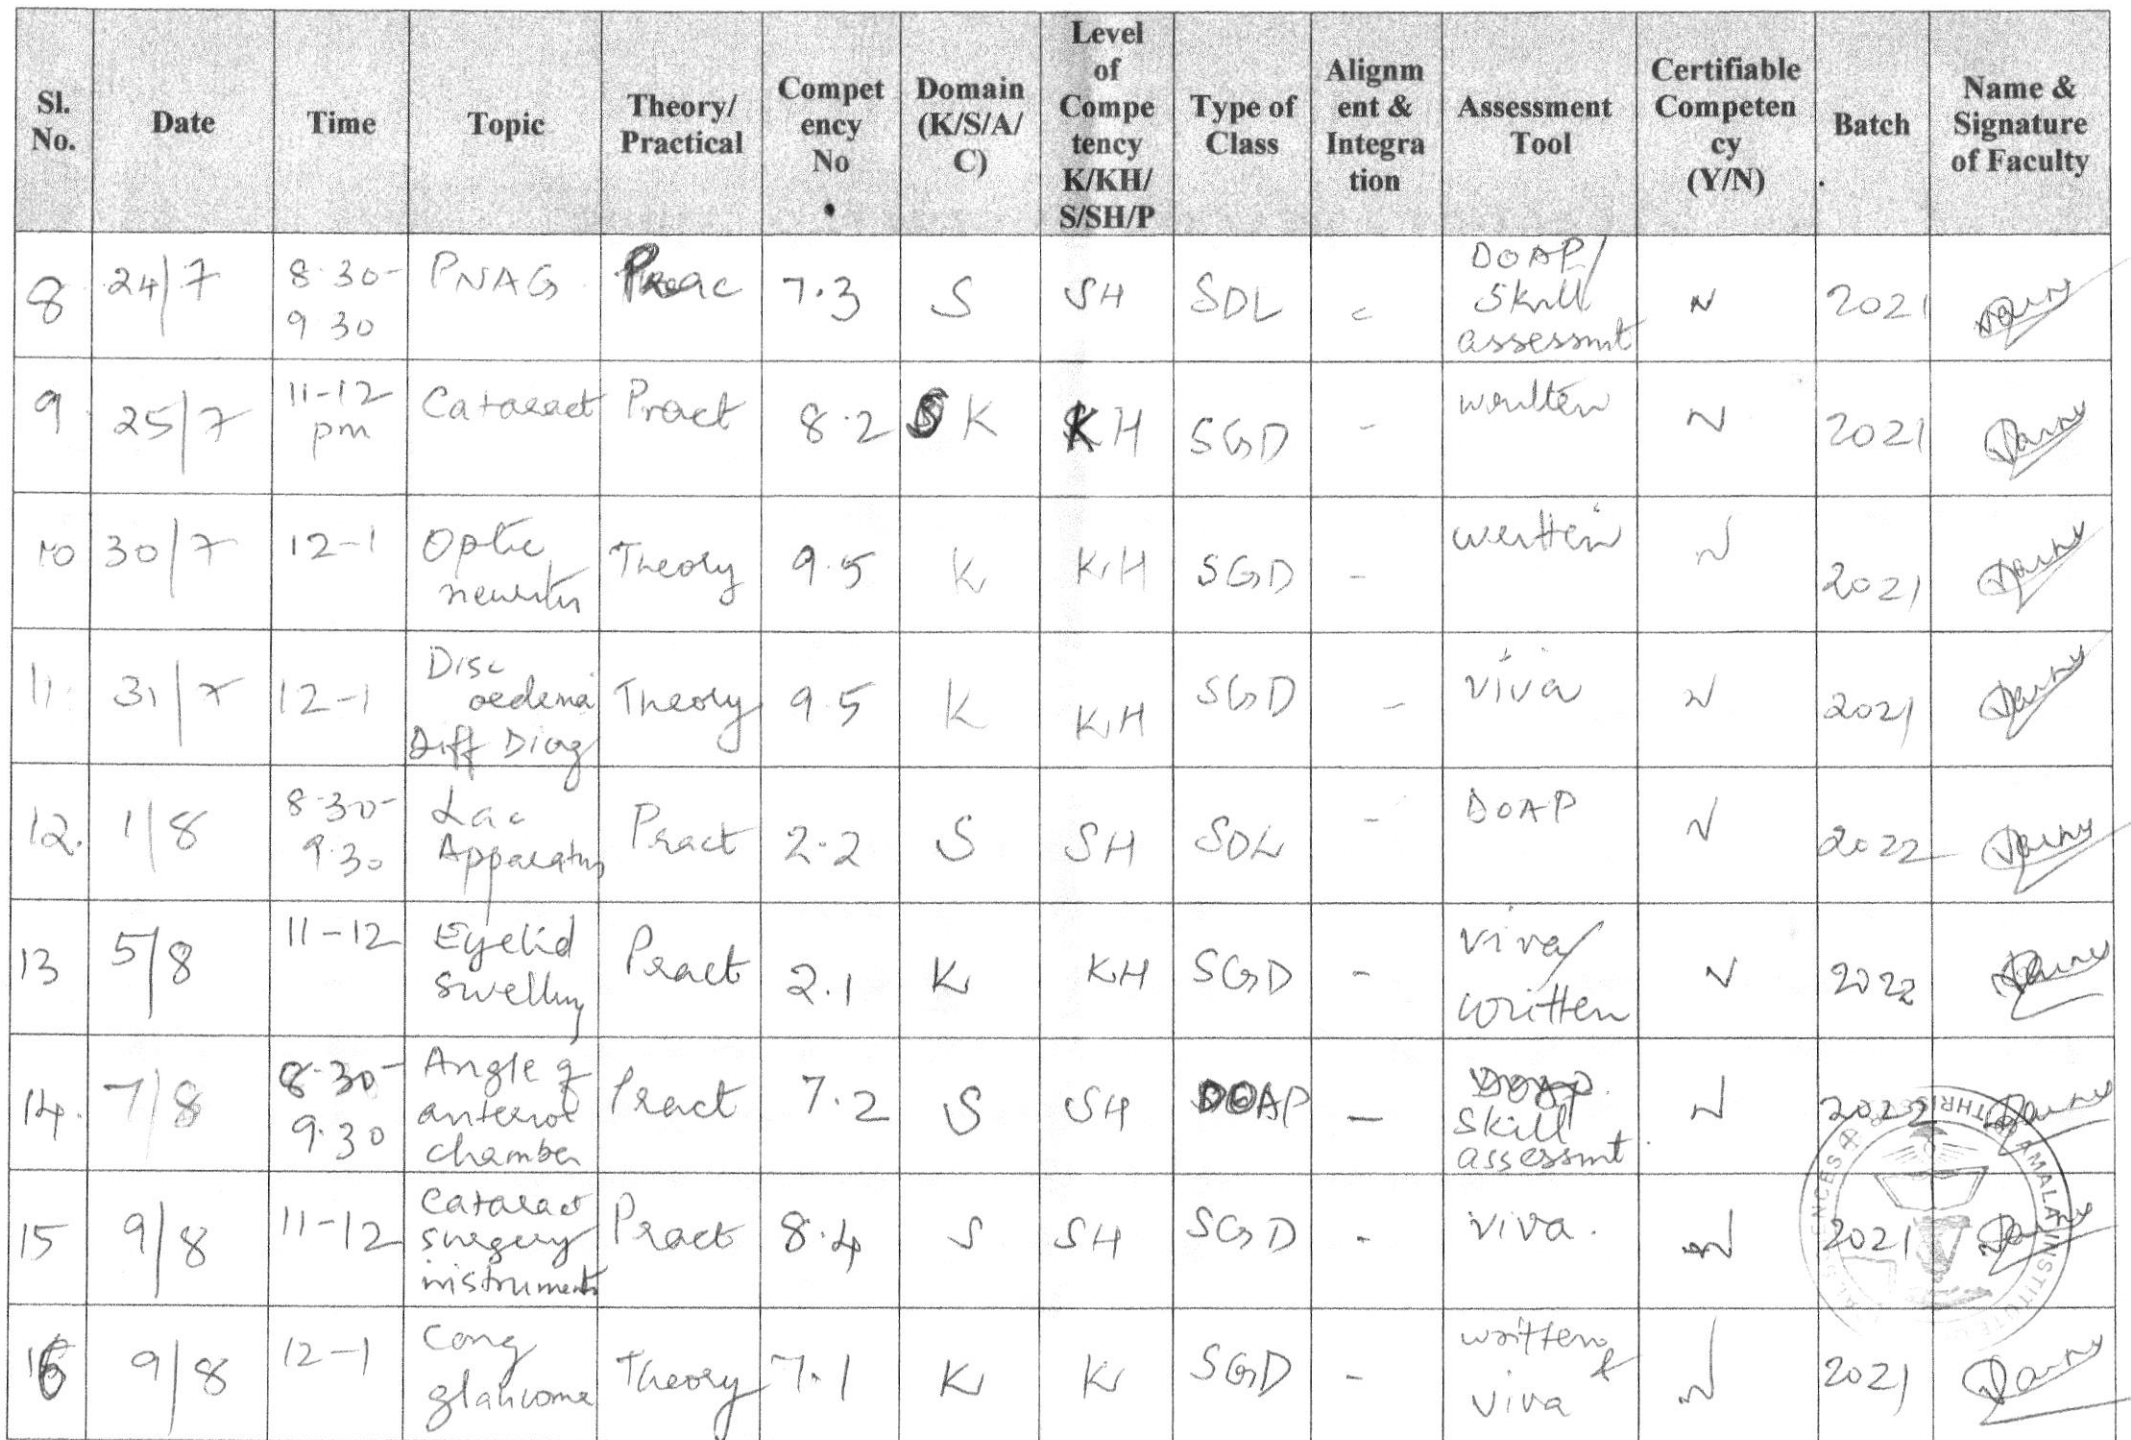 Sl. No. | Date | Time | Topic | Theory/ Practical | Compet ency No | Domain (K/S/A/ C) | Level of Compe tency K/KH/ S/SH/P | Type of Class | Alignm ent & Integra tion | Assessment Tool | Certifiable Competen cy (Y/N) | Batch | Name & Signature of Faculty
8 | 24/7 | 8.30- 9 30 | PNAG | Prac | 7.3 | S | SH | SDL | - | DOAP/ Skill assessmt | N | 2021
9 | 25/7 | 11-12 pm | Cataract | Pract | 8.2 | K | KH | SGD | - | written | N | 2021
10 | 30/7 | 12-1 | Optic neuritis | Theory | 9.5 | K | KH | SGD | - | written | N | 2021
11 | 31/7 | 12-1 | Disc oedema Diff Diag | Theory | 9.5 | K | KH | SGD | - | viva | N | 2021
12. | 1/8 | 8.30- 9.30 | Lac Apparatus | Pract | 2.2 | S | SH | SDL | - | DOAP | N | 2022
13 | 5/8 | 11-12 | Eyelid Swelling | Pract | 2.1 | K | KH | SGD | - | viva/ written | N | 2022
14. | 7/8 | 8.30- 9.30 | Angle of anterior chamber | Pract | 7.2 | S | SH | DOAP | - | Skill assessmt. | N | 2022
15 | 9/8 | 11-12 | Cataract surgery instruments | Pract | 8.4 | S | SH | SGD | - | viva. | N | 2021
16 | 9/8 | 12-1 | Cong glaucoma | Theory | 7.1 | K | K | SGD | - | written & viva | N | 2021